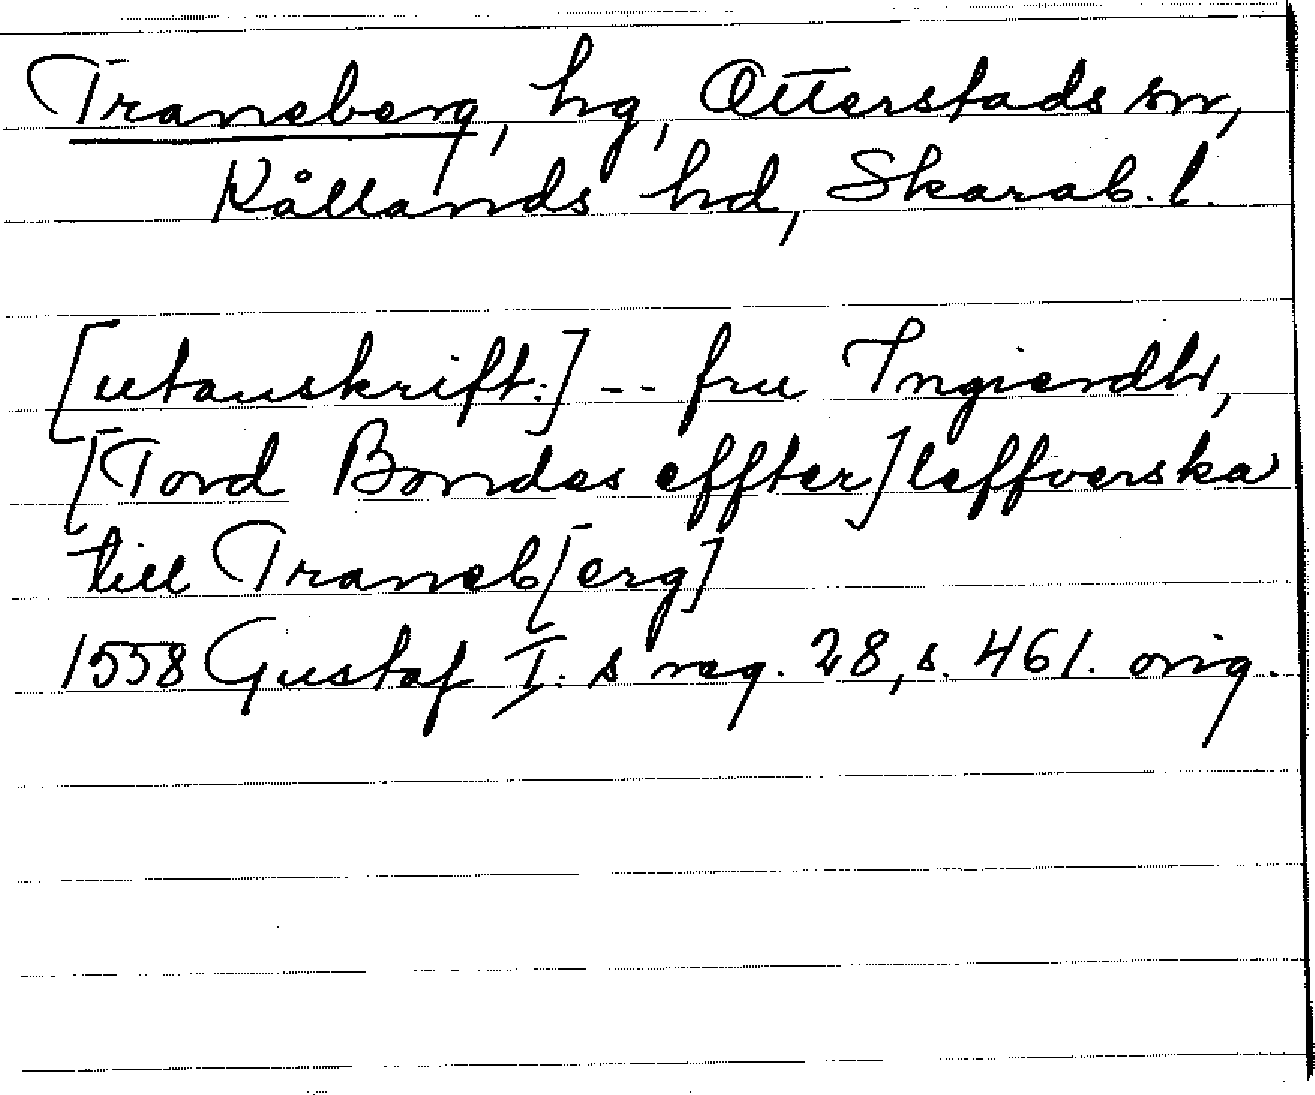 Traneberg, hg, Otterstads sn,
Kållands hd, Skarab. l.
[utanskrift:] -- fru Ingierdh,
[Tord Bondes effter]leffverska
till Traneb[erg]
1558 Gustaf I:s reg. 28, s. 461. orig.